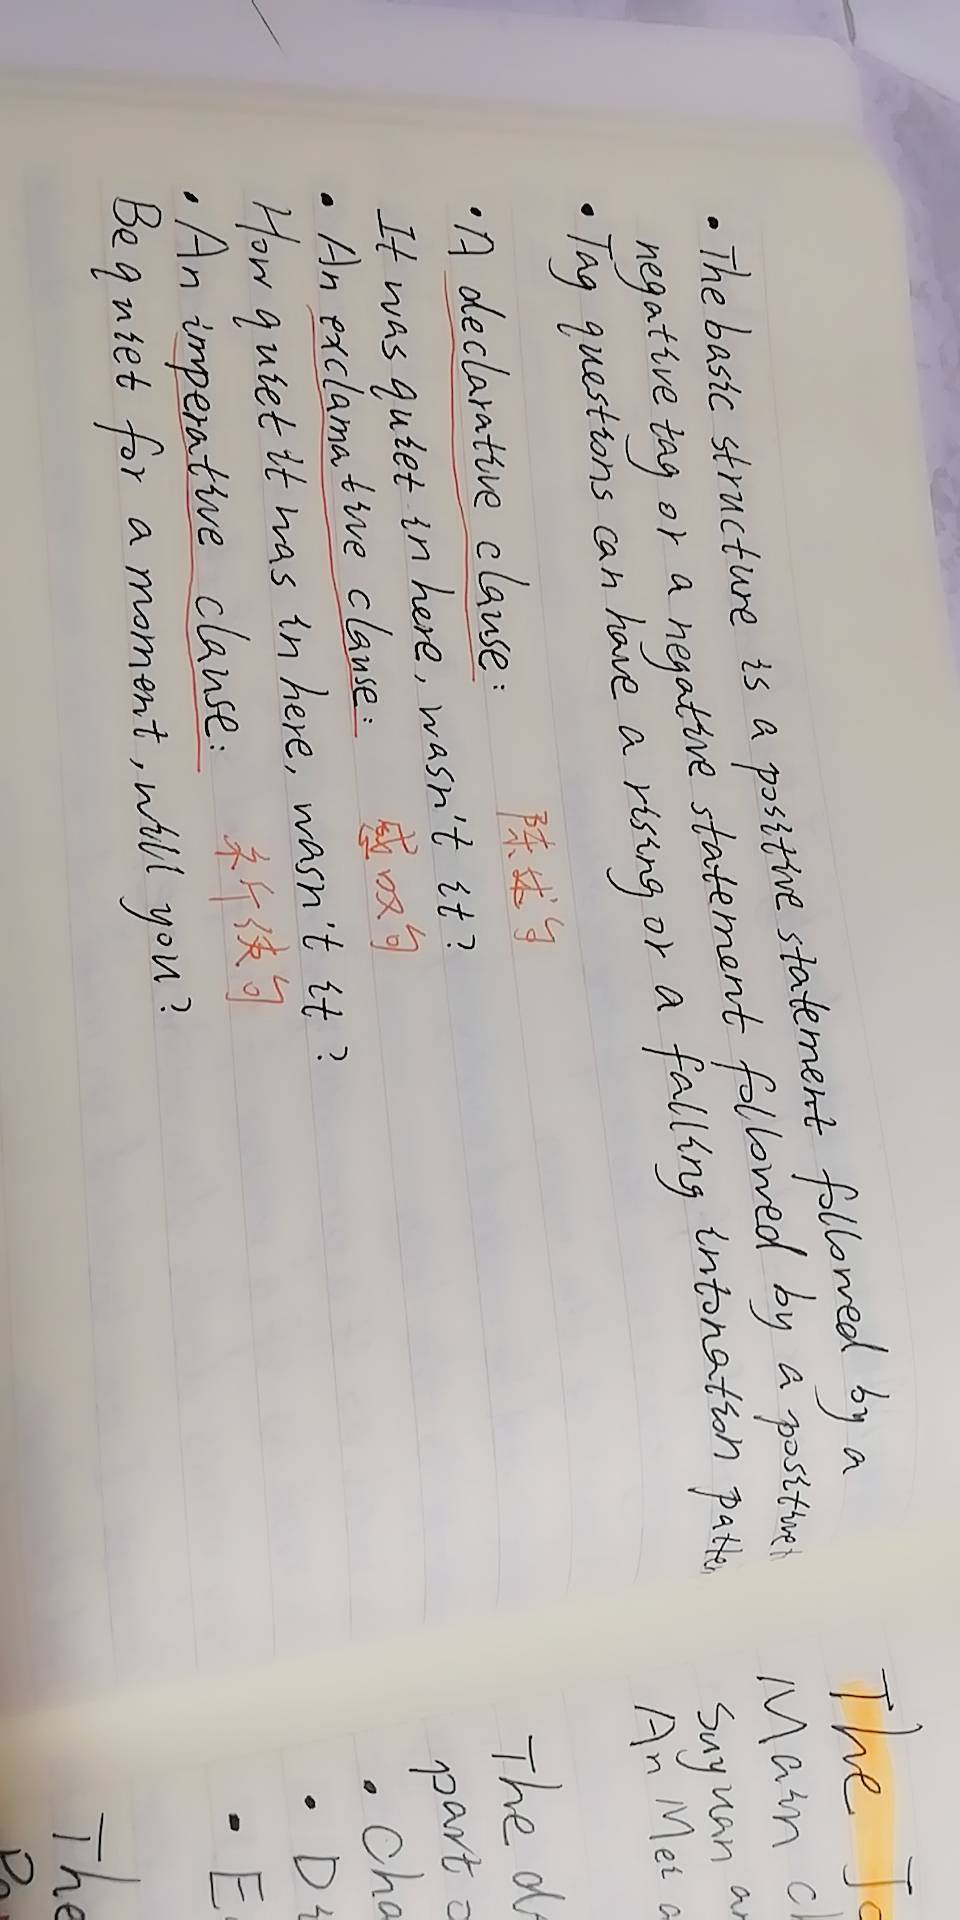 • The basic structure is a positive statement followed by a
negative tag or a negative statement followed by a positive
• Tag questions can have a rising or a falling intonation
• A declarative clause: 陈述句
It was quiet in here, wasn't it?
• An exclamative clause: 感叹句
How quiet it was in here, wasn't it?
• An imperative clause: 祈使句
Be quiet for a moment, will you?
The
Main
Suyuan
An Mei
The
part
•
•
•
The